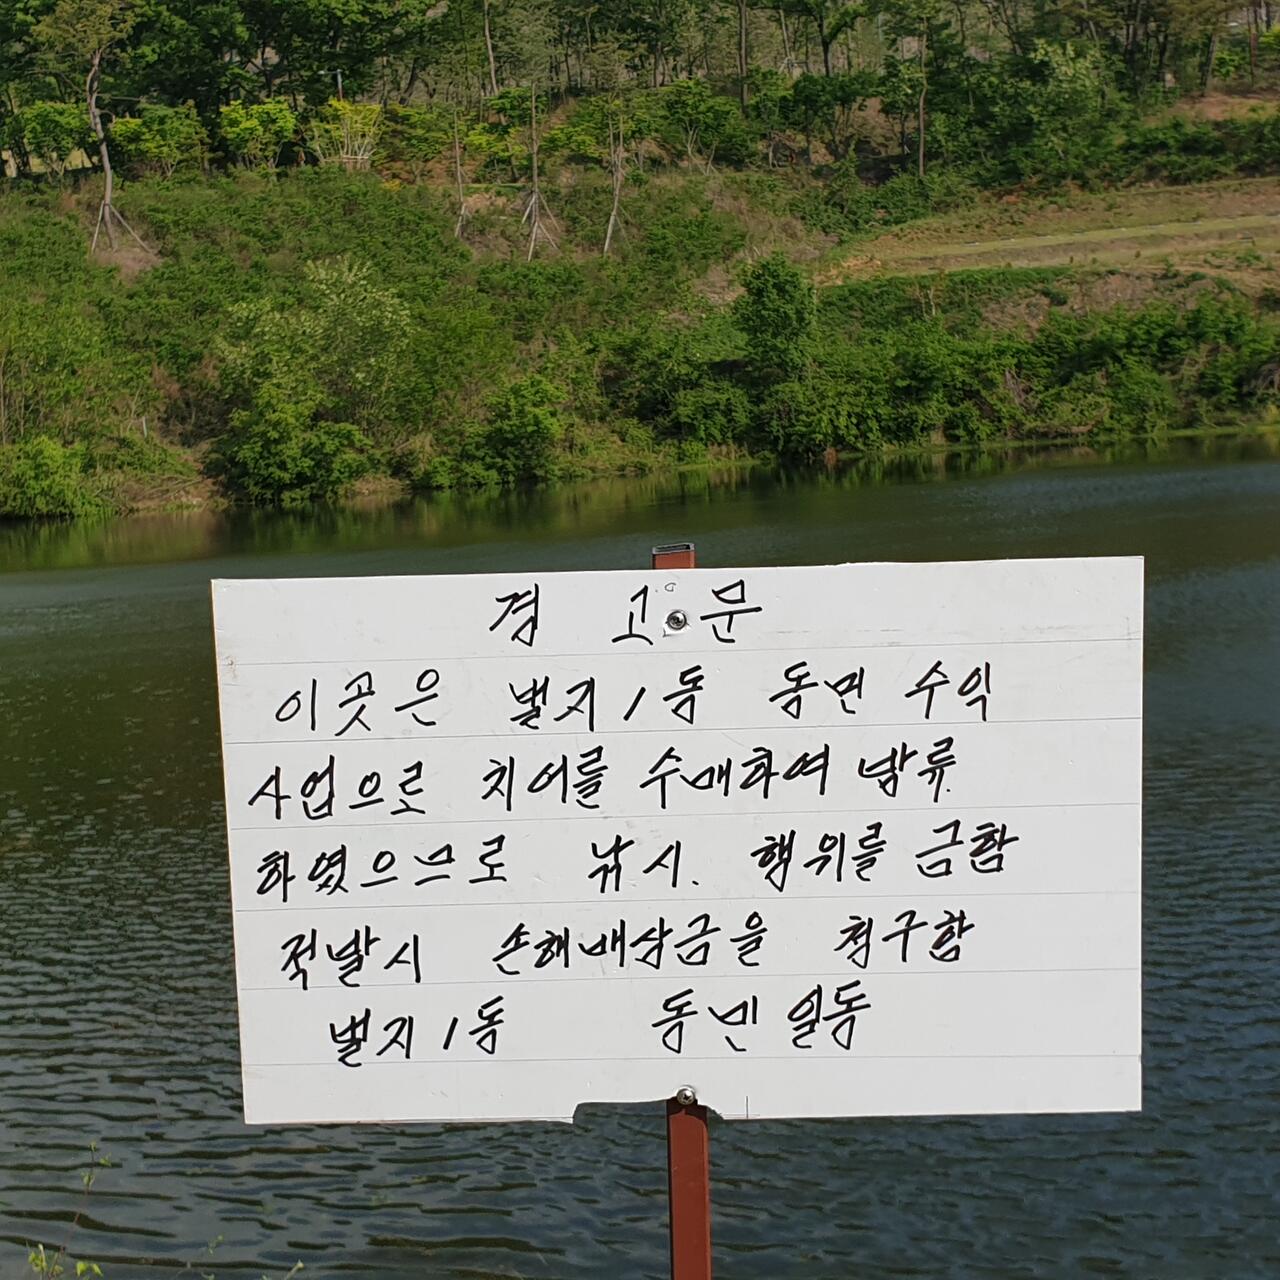 경 고 문
이곳은 벌지1동 동민 수익
사업으로 치어를 수매하여 방류
하였으므로 낚시. 행위를 금함
적발시 손해배상금을 청구함
벌지1동 동민 일동